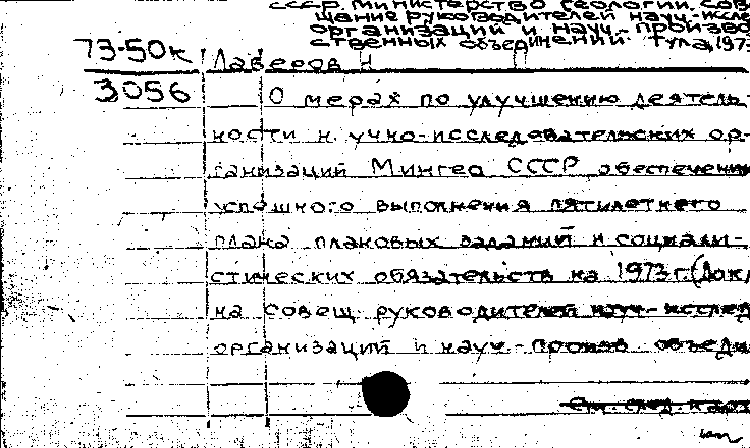 СССР. Министерство геологии. Сов
щание руководителей науч.-иссле
организаций и науч.-произво
ственных объединений. Тула, 197
73-50к Лаверов Н
3056 О мерах по улучшению деятель-
ности н учно-исследовательских ор-
ганизаций Мингео СССР обеспечени
успешного выполнения пятилетнего
плана плановых заданий и социали-
стических обязательств на 1973 г. (Док
на совещ. руководителей науч.-исслед
организаций и науч.-произв. объеди
См. след. карт